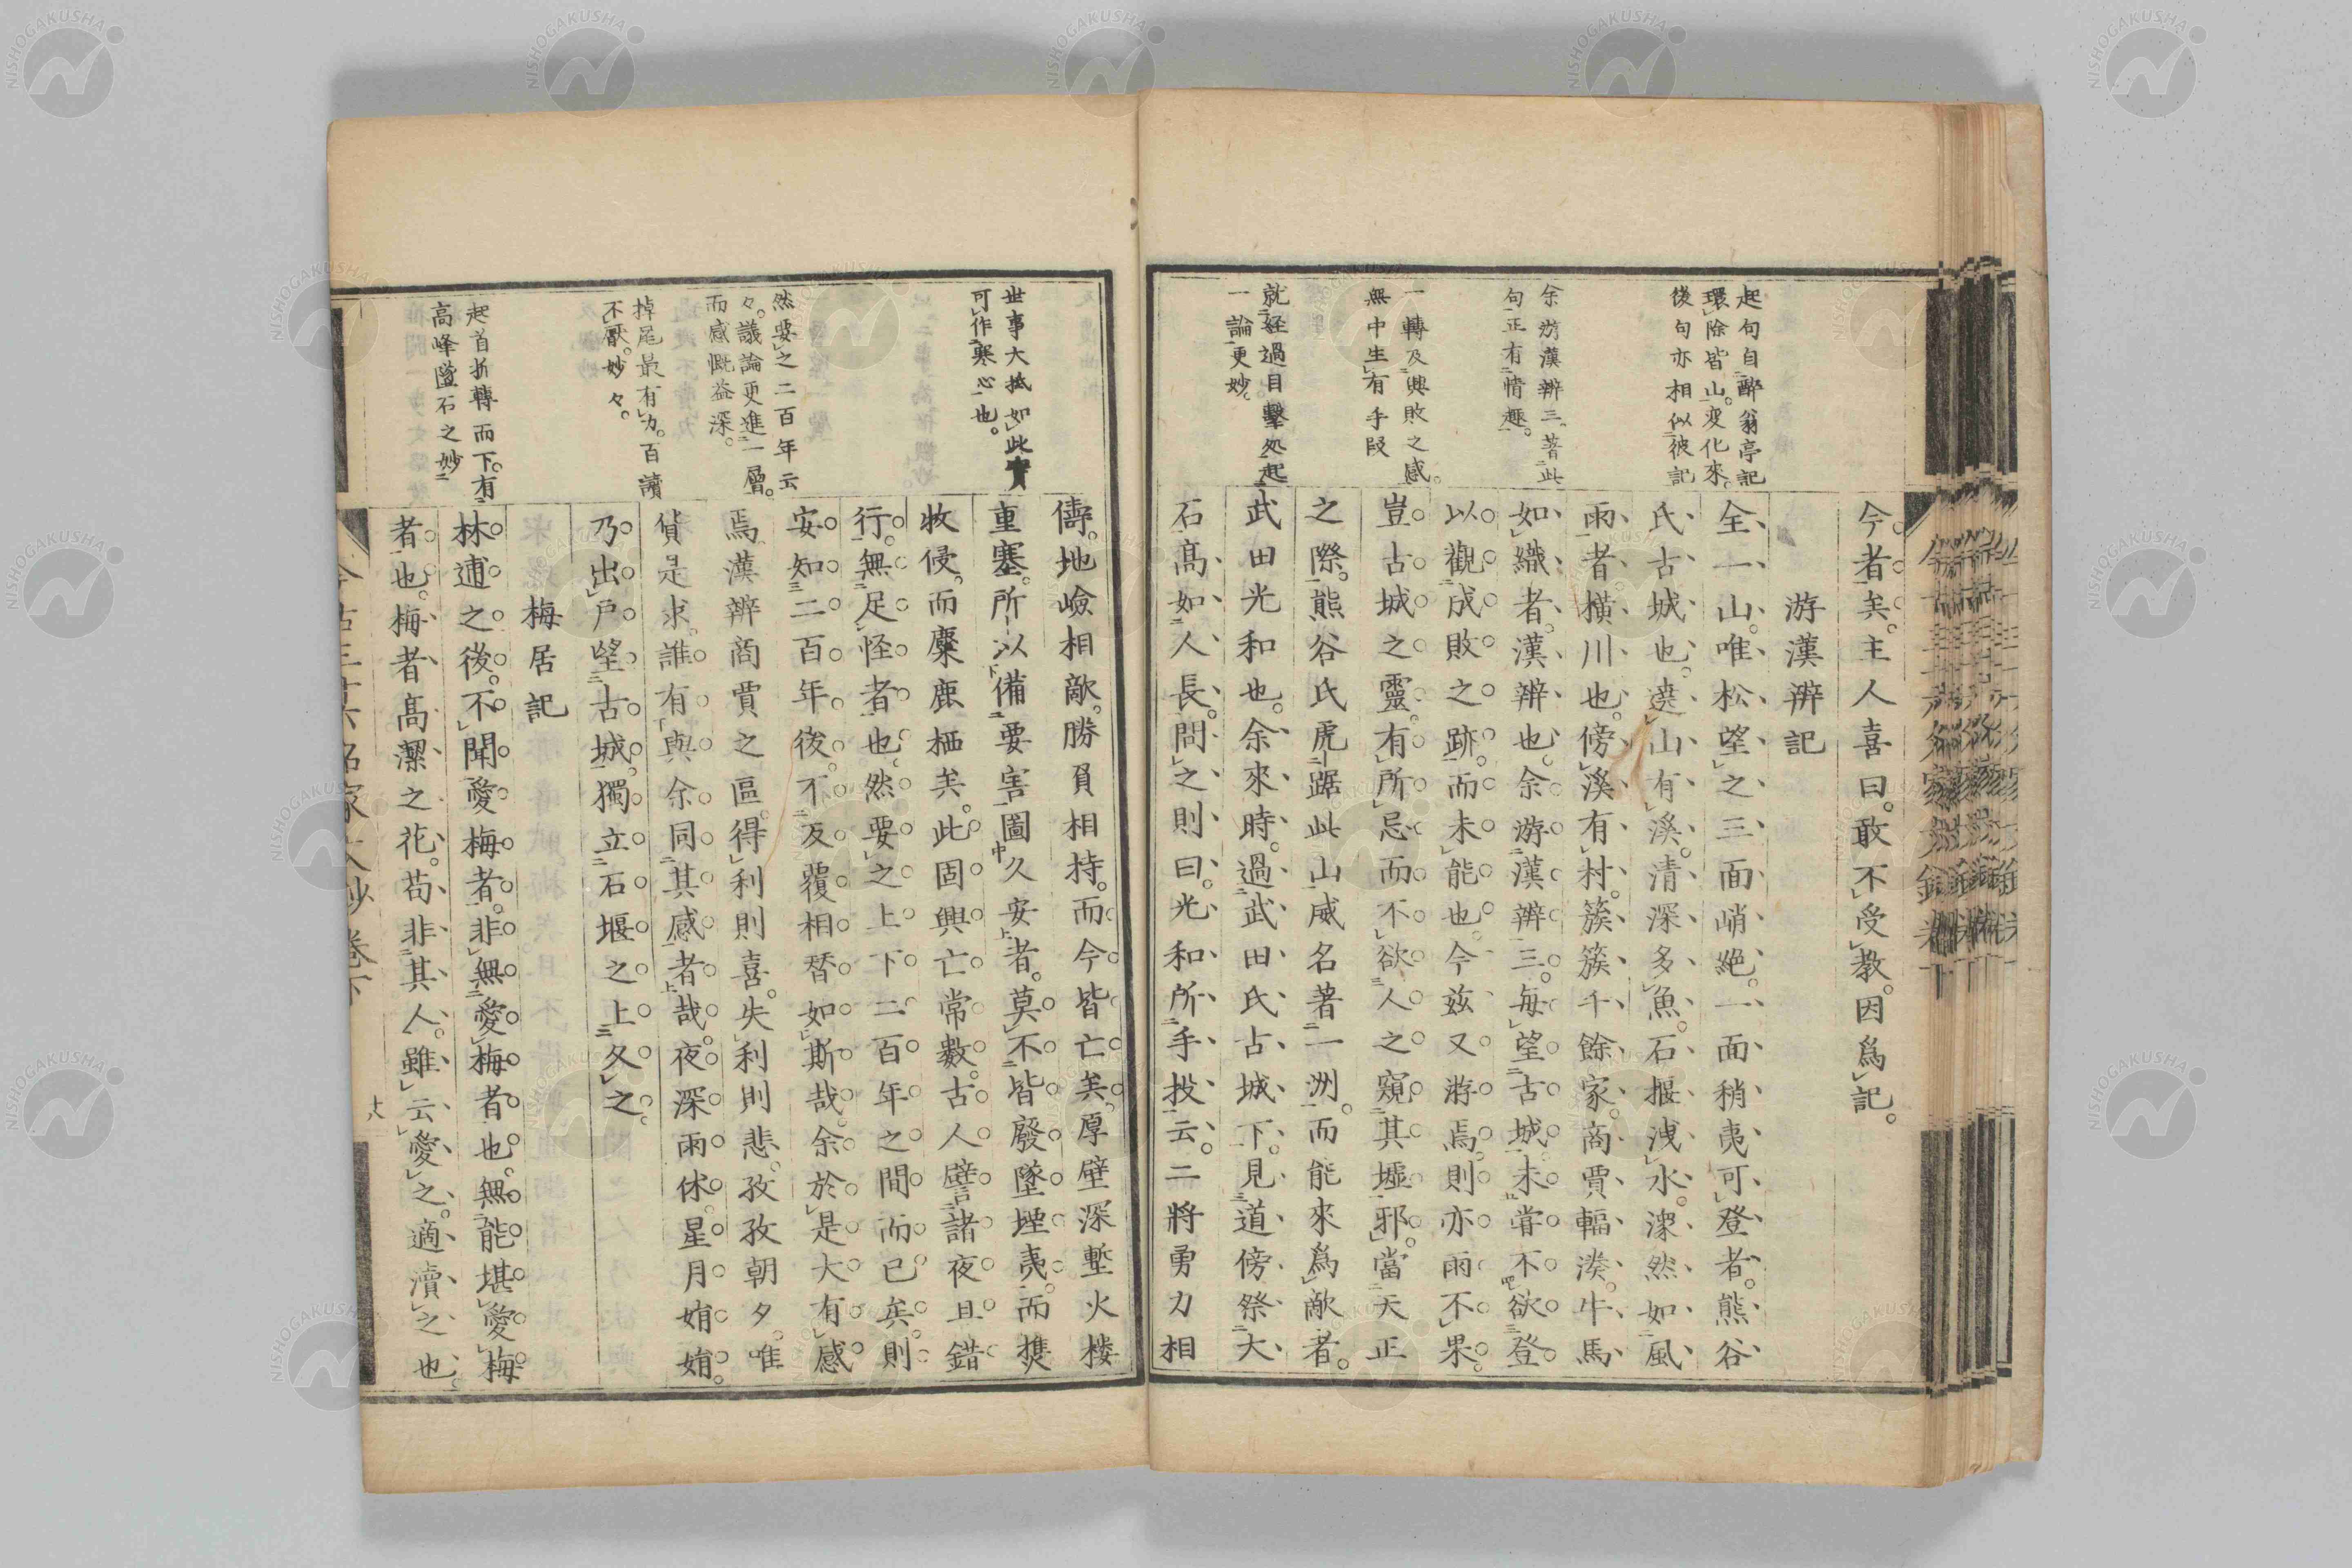 今者矣。主人喜曰。敢不受教。因爲記。
游漢辨記
全一山。唯松望之三面峭絶。一面稍夷可登者。熊谷
氏古城也。遶山有溪。清深多魚。石堰洩水。潨然如風
雨者橫川也。傍溪有村。簇簇千餘家。商賈輻湊。牛馬
如織者。漢辨也。余游漢辨三。每望古城。未甞不欲登
以觀成敗之跡。而未能也。今兹又游焉。則亦雨不果。
豈古城之靈。有所忌而不欲人之窺其墟邪。當天正
之際。熊谷氏虎踞此山。威名著一洲。而能來爲敵者。
武田光和也。余來時。過武田氏古城下。見道傍祭大
石高如人長。問之則曰。光和所手投云。二將勇力相
起句自醉翁亭記
環除皆山。变化來。
後句亦相似彼記
余游漢辨三著此
句正有情趣。
一轉及興敗之感。
無中生有手段
就経過目擊処起
一論更妙。
儔。地嶮相敵。勝負相持。而今皆亡矣。厚壁深塹火楼
重塞。所以備要害圖久安者。莫不皆廢墜堙夷。而樵
牧侵。而麋鹿栖矣。此固興亡常數。古人譬諸夜旦錯
行。無足怪者也。然要之上下二百年之間而已矣。則
安如二百年後。不反覆相替如斯哉。余於是大有感
焉。漢辨商賈之區。得利則喜。失利則悲。孜孜朝夕。唯
貨是求。誰有與余同其感者哉。夜深雨休。星月娟娟。
乃出戶望古城。獨立石堰之上久之。
梅居記
林逋之後。不聞愛梅者。非無愛梅者也。無能堪愛梅
者也。梅者高潔之花。苟非其人。雖云愛之。適瀆之也。
世事大抵如此實
可作寒心也。
然要之二百年云
々。議論更進一層。
而感慨益深。
掉尾最有力。百讀
不厭。妙々。
起首折轉而下。有
高峰墜石之妙